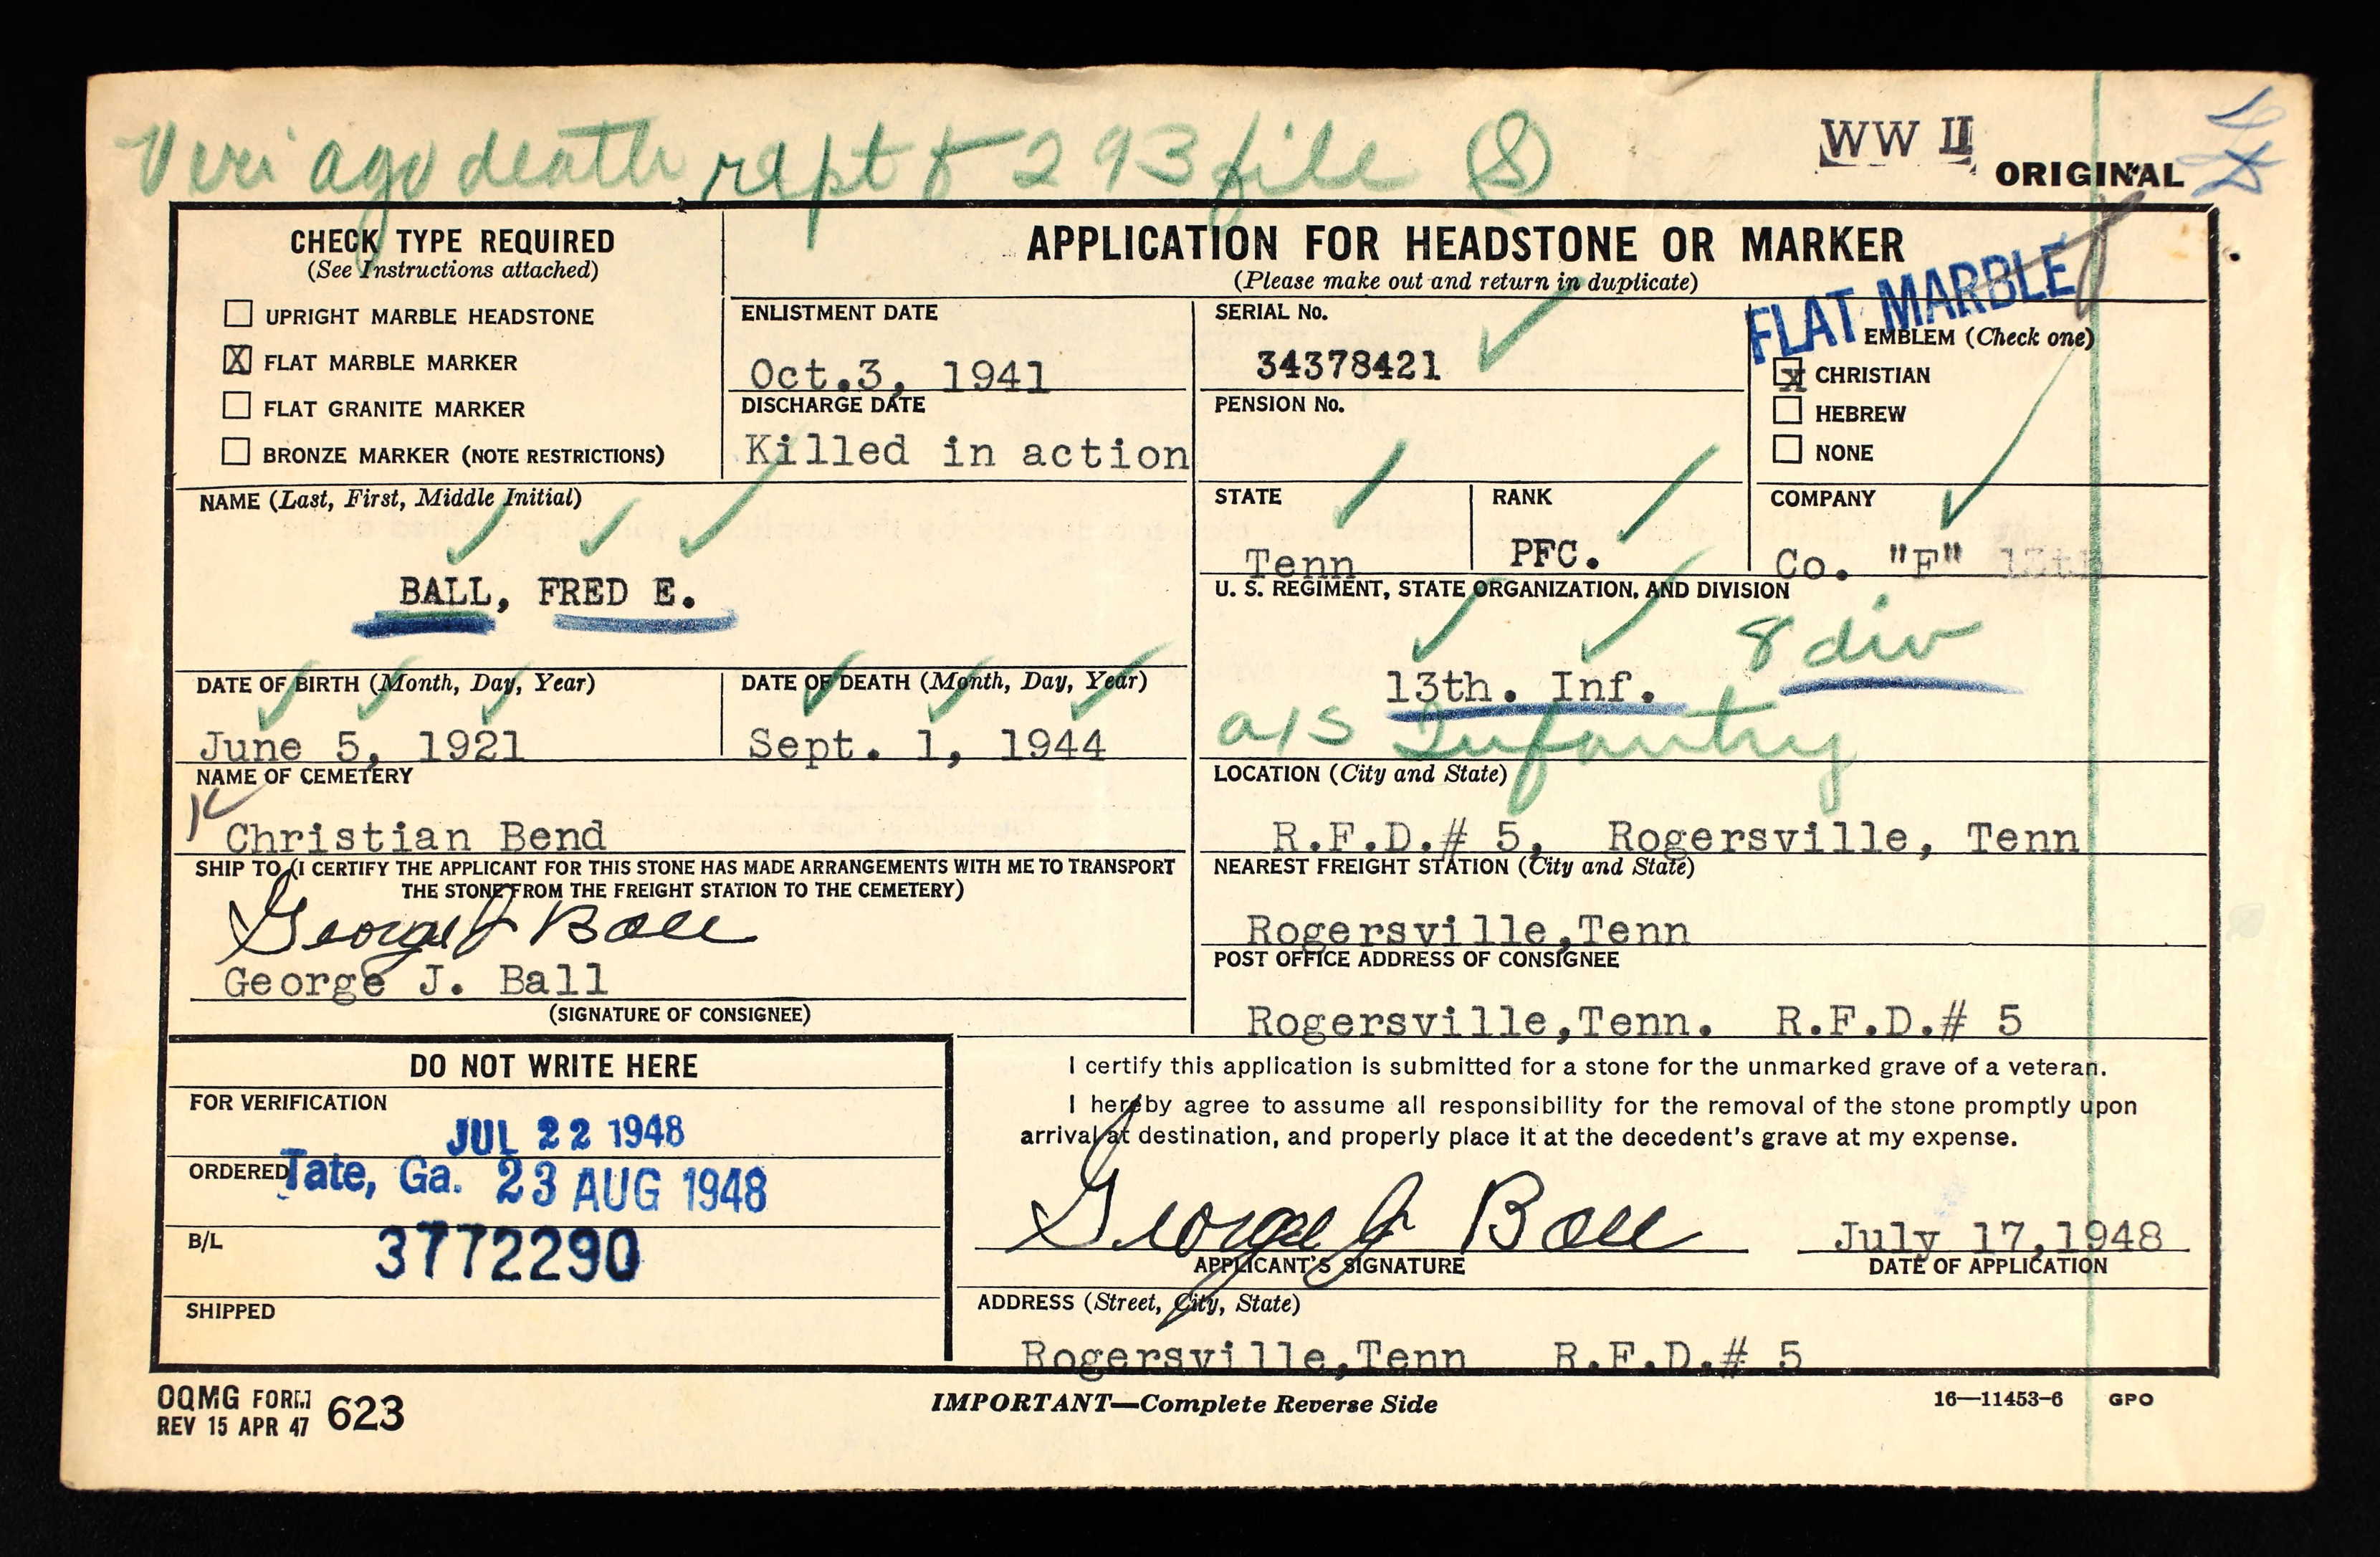 Veri ago death rept & 293 file (S)
WW II
ORIGINAL
CHECK TYPE REQUIRED
(See Instructions attached)
☐ UPRIGHT MARBLE HEADSTONE
☒ FLAT MARBLE MARKER
☐ FLAT GRANITE MARKER
☐ BRONZE MARKER (NOTE RESTRICTIONS)
APPLICATION FOR HEADSTONE OR MARKER
(Please make out and return in duplicate)
ENLISTMENT DATE
Oct.3, 1941
DISCHARGE DATE
Killed in action
SERIAL No.
34378421
PENSION No.
FLAT MARBLE
EMBLEM (Check one)
☒ CHRISTIAN
☐ HEBREW
☐ NONE
NAME (Last, First, Middle Initial)
BALL, FRED E.
STATE
Tenn
RANK
PFC.
COMPANY
Co. "F" 13th
U. S. REGIMENT, STATE ORGANIZATION, AND DIVISION
8 div
13th. Inf.
a/s Infantry
DATE OF BIRTH (Month, Day, Year)
June 5, 1921
DATE OF DEATH (Month, Day, Year)
Sept. 1, 1944
NAME OF CEMETERY
Christian Bend
LOCATION (City and State)
R.F.D.# 5, Rogersville, Tenn
SHIP TO (I CERTIFY THE APPLICANT FOR THIS STONE HAS MADE ARRANGEMENTS WITH ME TO TRANSPORT
THE STONE FROM THE FREIGHT STATION TO THE CEMETERY)
George J Ball
George J. Ball
(SIGNATURE OF CONSIGNEE)
NEAREST FREIGHT STATION (City and State)
Rogersville,Tenn
POST OFFICE ADDRESS OF CONSIGNEE
Rogersville,Tenn. R.F.D.# 5
DO NOT WRITE HERE
FOR VERIFICATION
JUL 22 1948
ORDERED Tate, Ga. 23 AUG 1948
B/L 3772290
SHIPPED
I certify this application is submitted for a stone for the unmarked grave of a veteran.
I hereby agree to assume all responsibility for the removal of the stone promptly upon
arrival at destination, and properly place it at the decedent's grave at my expense.
George J Ball
APPLICANT'S SIGNATURE
July 17,1948
DATE OF APPLICATION
ADDRESS (Street, City, State)
Rogersville,Tenn R.F.D.# 5
OQMG FORM 623
REV 15 APR 47
IMPORTANT—Complete Reverse Side
16—11453-6 GPO